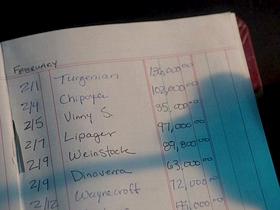 FEBRUARY
2/1 Turgenian 186,000.00
2/4 Chipopa 102,000.00
2/5 Vinny S. 35,000.00
2/7 Lipager 97,000.00
2/9 Weinstock 89,800.00
2/9 Dinoverra 63,000.00
2/12 Waynecroft 72,000.00